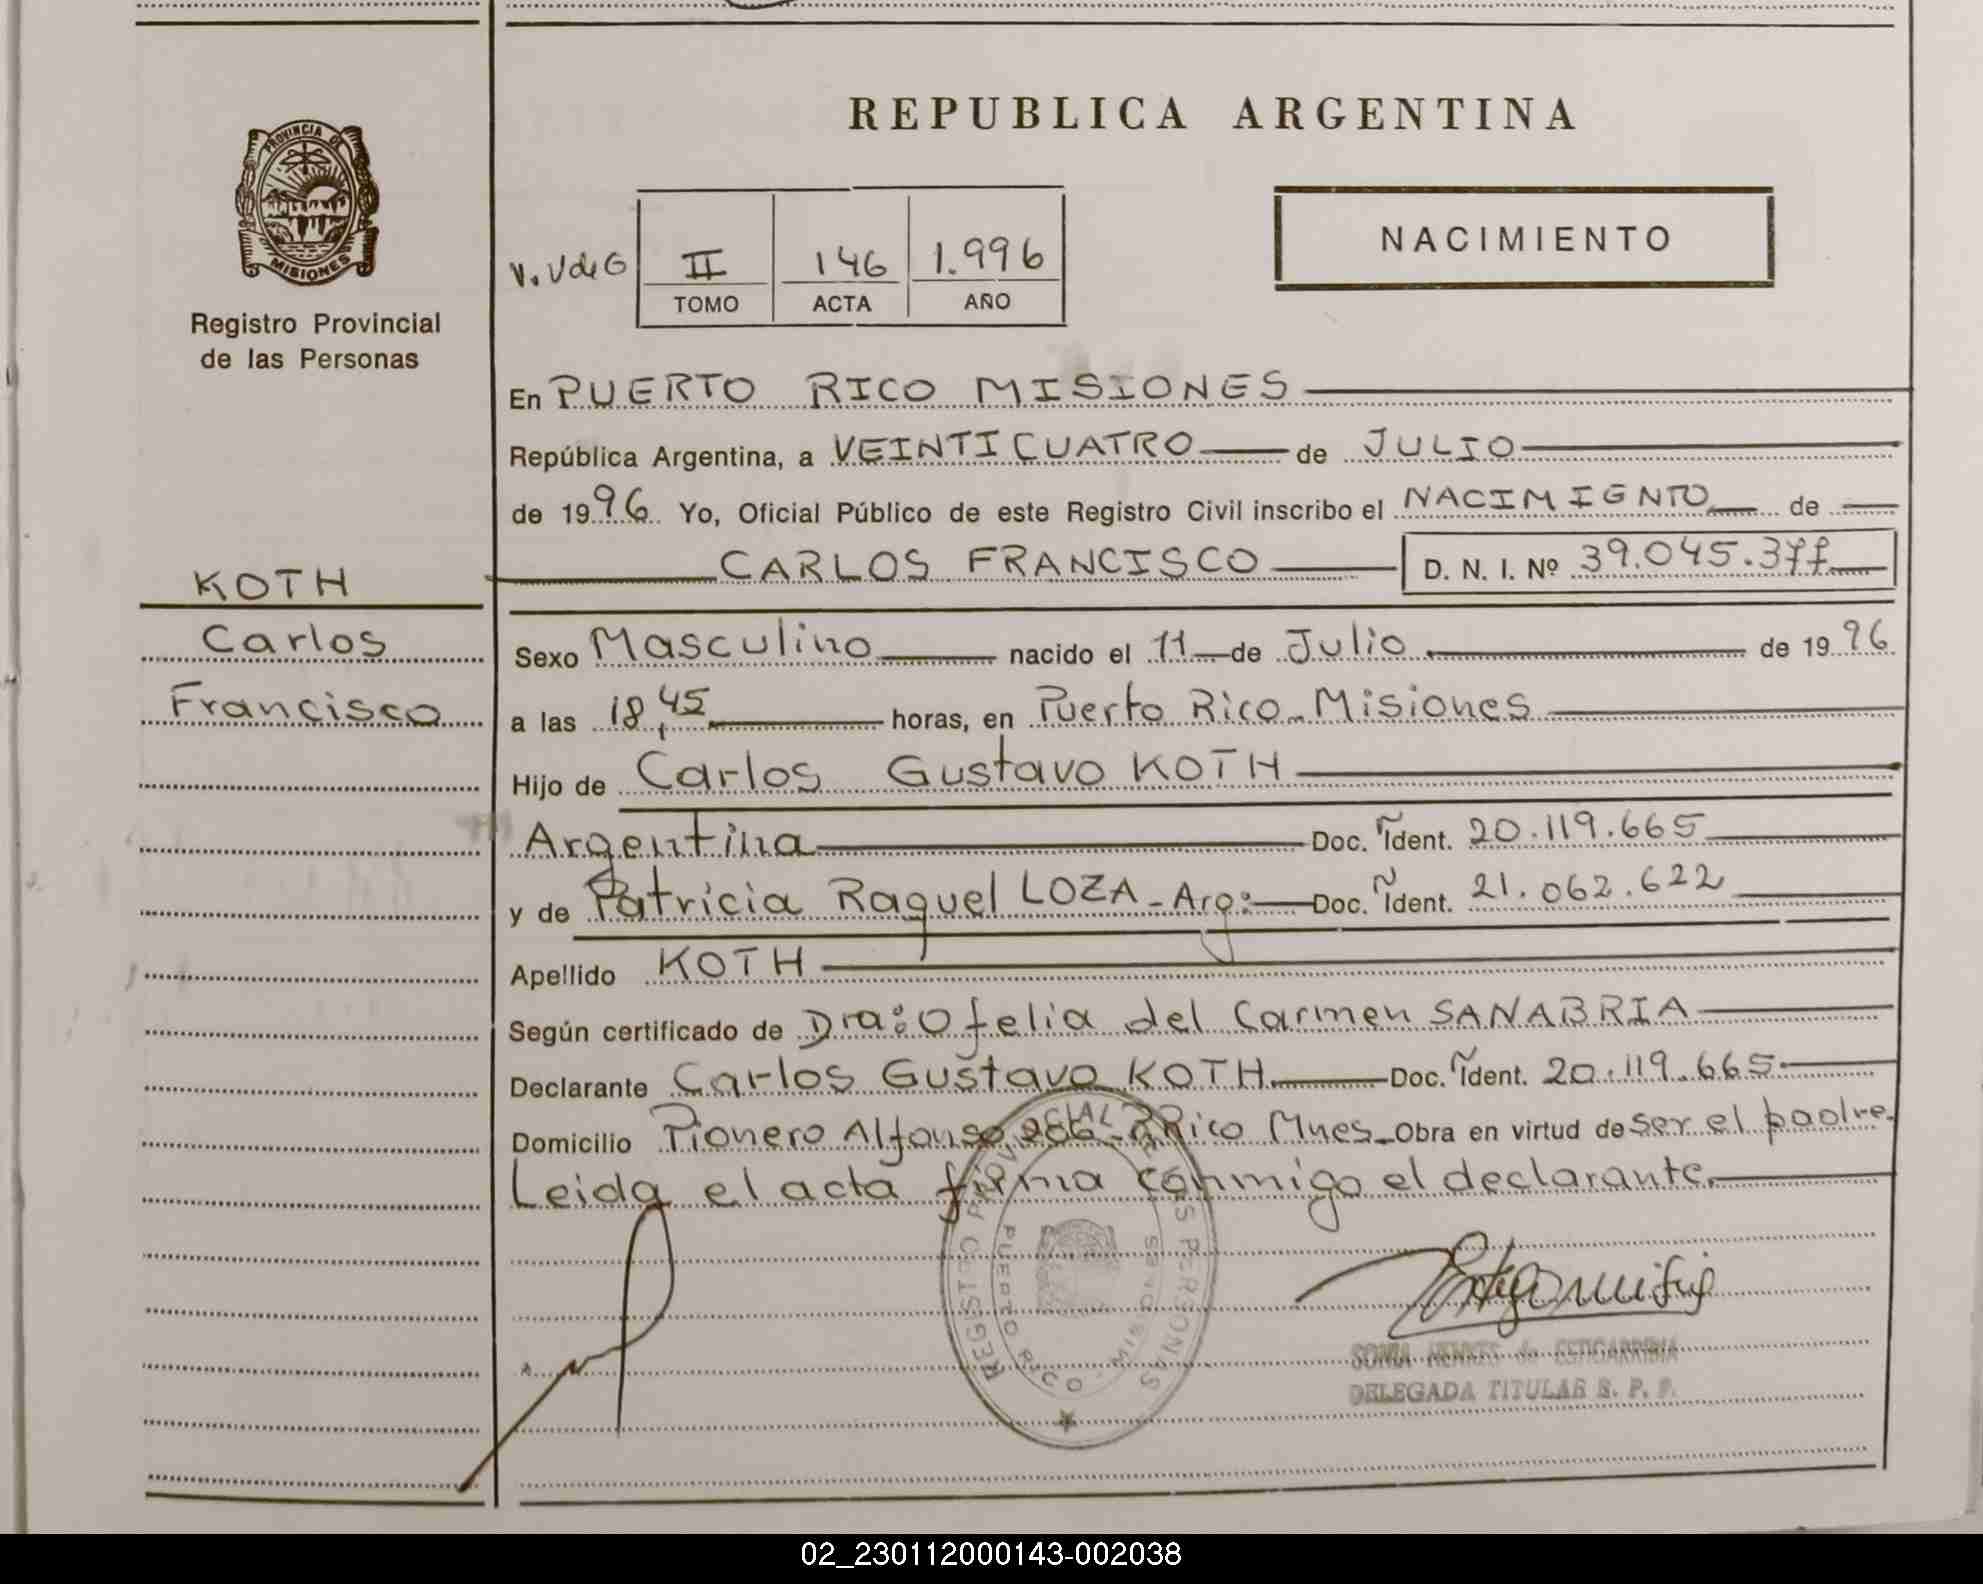 REPUBLICA ARGENTINA
PROVINCIA DE MISIONES
Registro Provincial
de las Personas
V. V de G
II 146 1.996
TOMO ACTA AÑO
NACIMIENTO
En PUERTO RICO MISIONES
República Argentina, a VEINTICUATRO de JULIO
de 1996 Yo, Oficial Público de este Registro Civil inscribo el NACIMIENTO de
CARLOS FRANCISCO D. N. I. Nº 39.045.377
KOTH
Carlos
Francisco
Sexo Masculino nacido el 11 de Julio de 1996
a las 18,45 horas, en Puerto Rico Misiones
Hijo de Carlos Gustavo KOTH
Argentina Doc. Ident. 20.119.665
y de Patricia Raquel LOZA - Arg: Doc. Ident. 21.062.622
Apellido KOTH
Según certificado de Dra: Ofelia del Carmen SANABRIA
Declarante Carlos Gustavo KOTH Doc. Ident. 20.119.665
Domicilio Pionero Alfonso 266 - P. Rico Mnes - Obra en virtud de ser el padre.
Leida el acta firma conmigo el declarante.
REGISTRO PROVINCIAL DE LAS PERSONAS
PUERTO RICO - MISIONES
SONIA HENKES de ESTIGARRIBIA
DELEGADA TITULAR R. P. P.
02_230112000143-002038